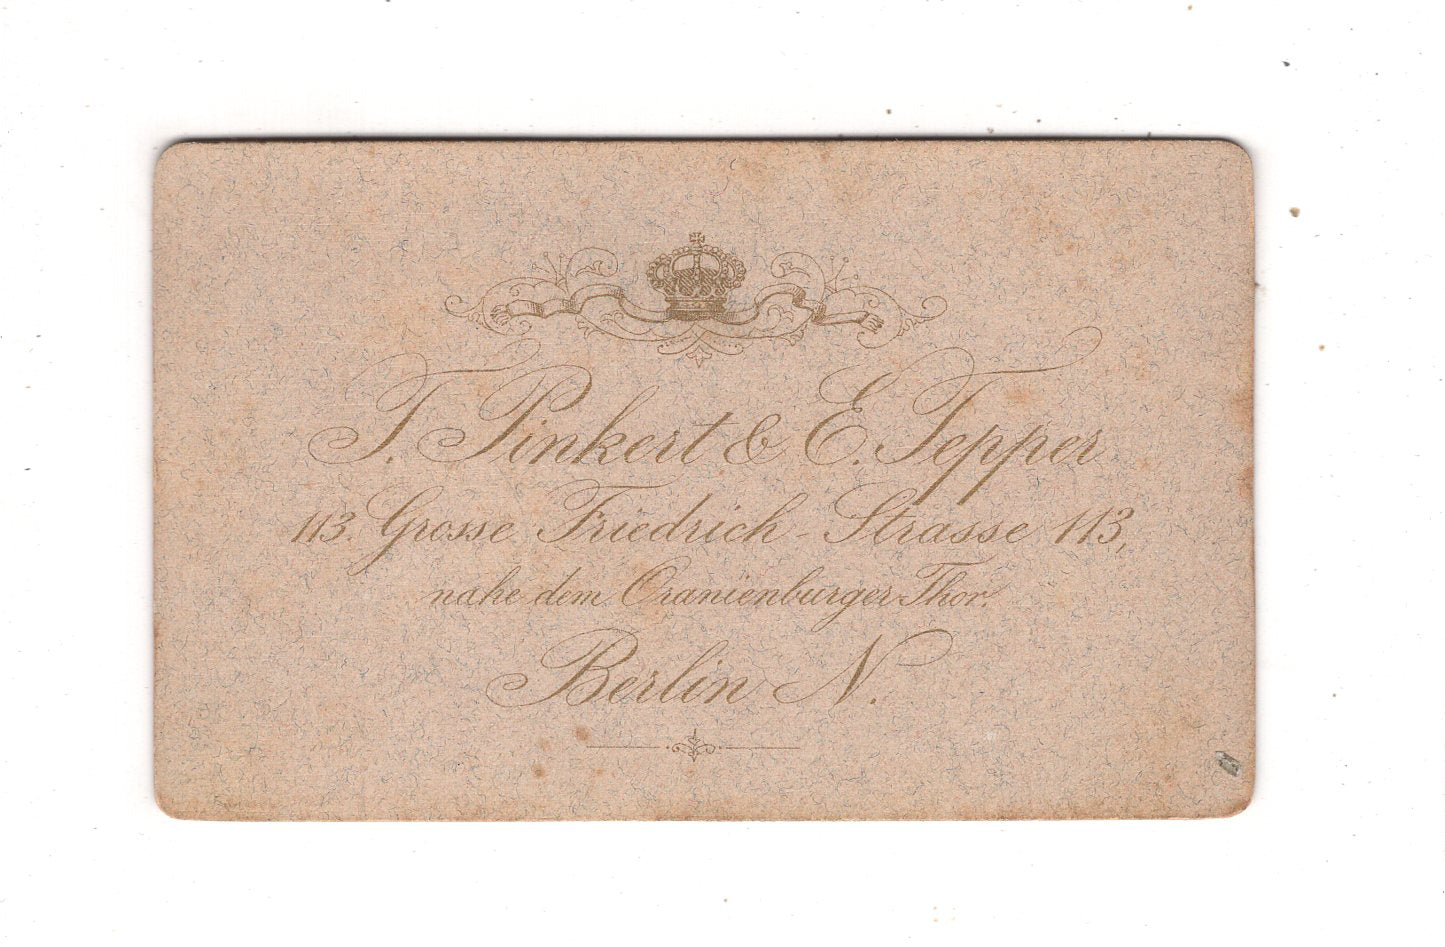 T. Pinkert & E. Tepper
113. Grosse Friedrich-Strasse 113,
nahe dem Oranienburger Thor.
Berlin N.